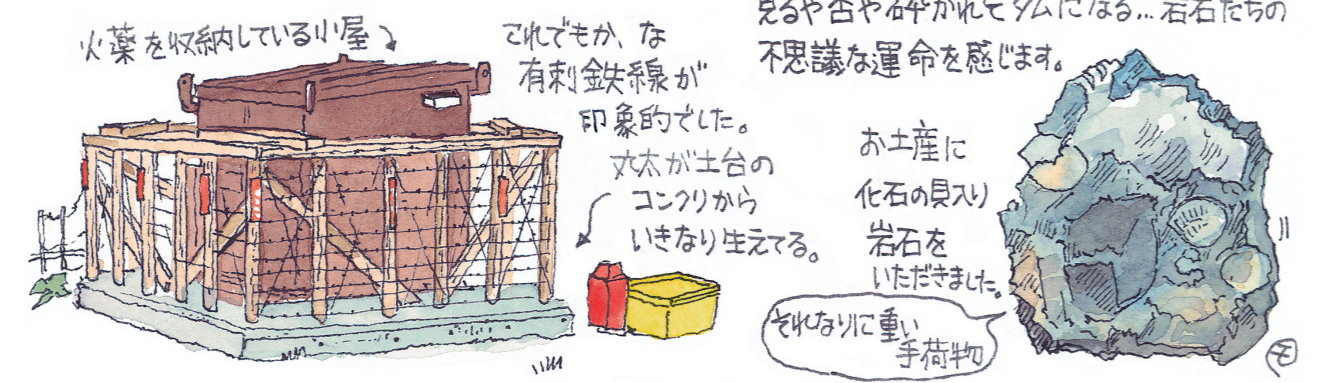 火薬を収納している小屋
これでもか、な
有刺鉄線が
印象的でした。
丸太が土台の
コンクリから
いきなり生えてる。
見るや否や砕かれてダムになる…岩石たちの
不思議な運命を感じます。
お土産に
化石の貝入り
岩石を
いただきました。
それなりに重い
手荷物